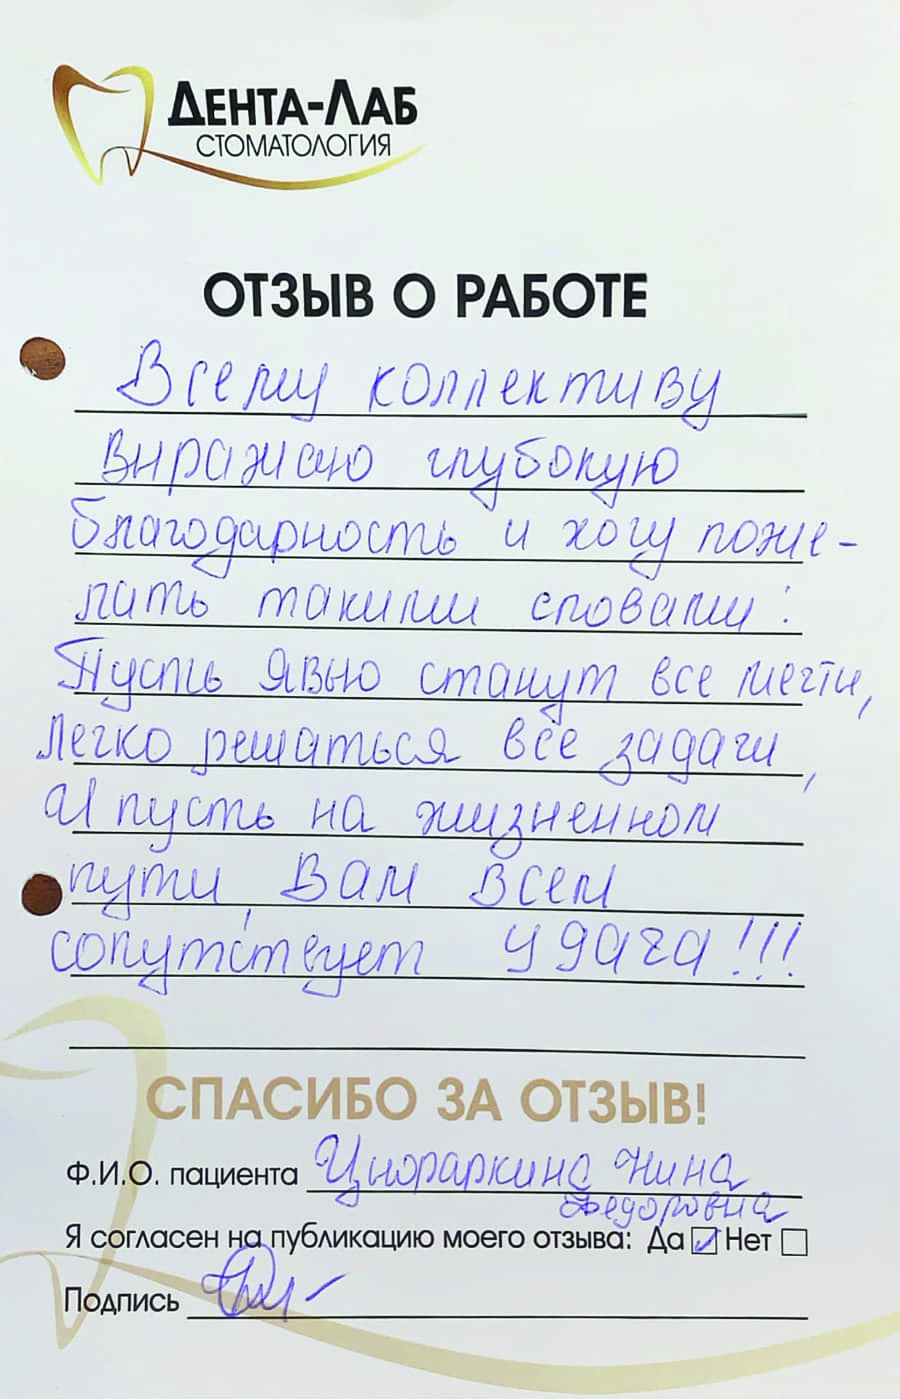 ДЕНТА-ЛАБ
СТОМАТОЛОГИЯ
ОТЗЫВ О РАБОТЕ
Всему коллективу
выражаю глубокую
благодарность и хочу поже-
лать такими словами:
Пусть явью станут все мечты,
легко решаться все задачи,
И пусть на жизненном
пути, Вам Всем
сопутствует УДАЧА!!!
СПАСИБО ЗА ОТЗЫВ!
Ф.И.О. пациента Нина
Федоровна
Я согласен на публикацию моего отзыва: Да Нет
Подпись